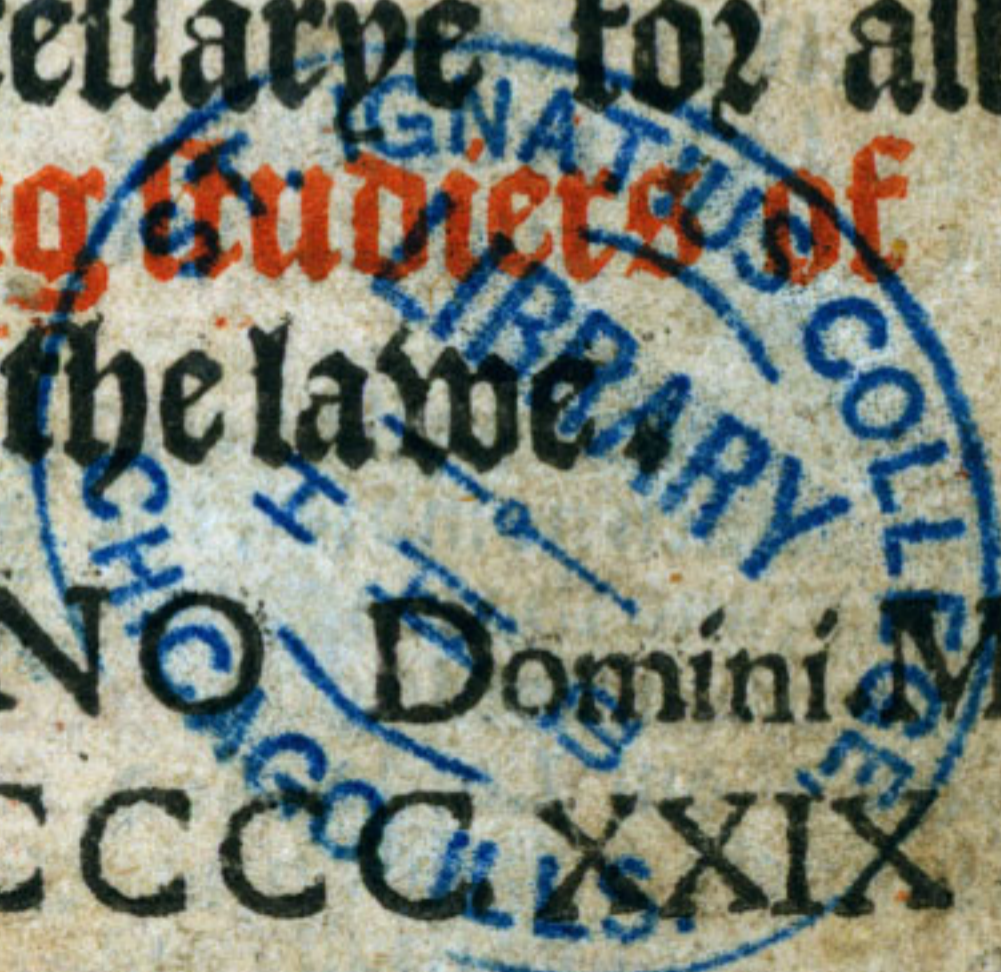 eſſarye for all
g ſtudiers of
the lawe.
NO Domini. M
CCCC. XXIX
ST. IGNATIUS COLLEGE
LIBRARY
CHICAGO ILLS.